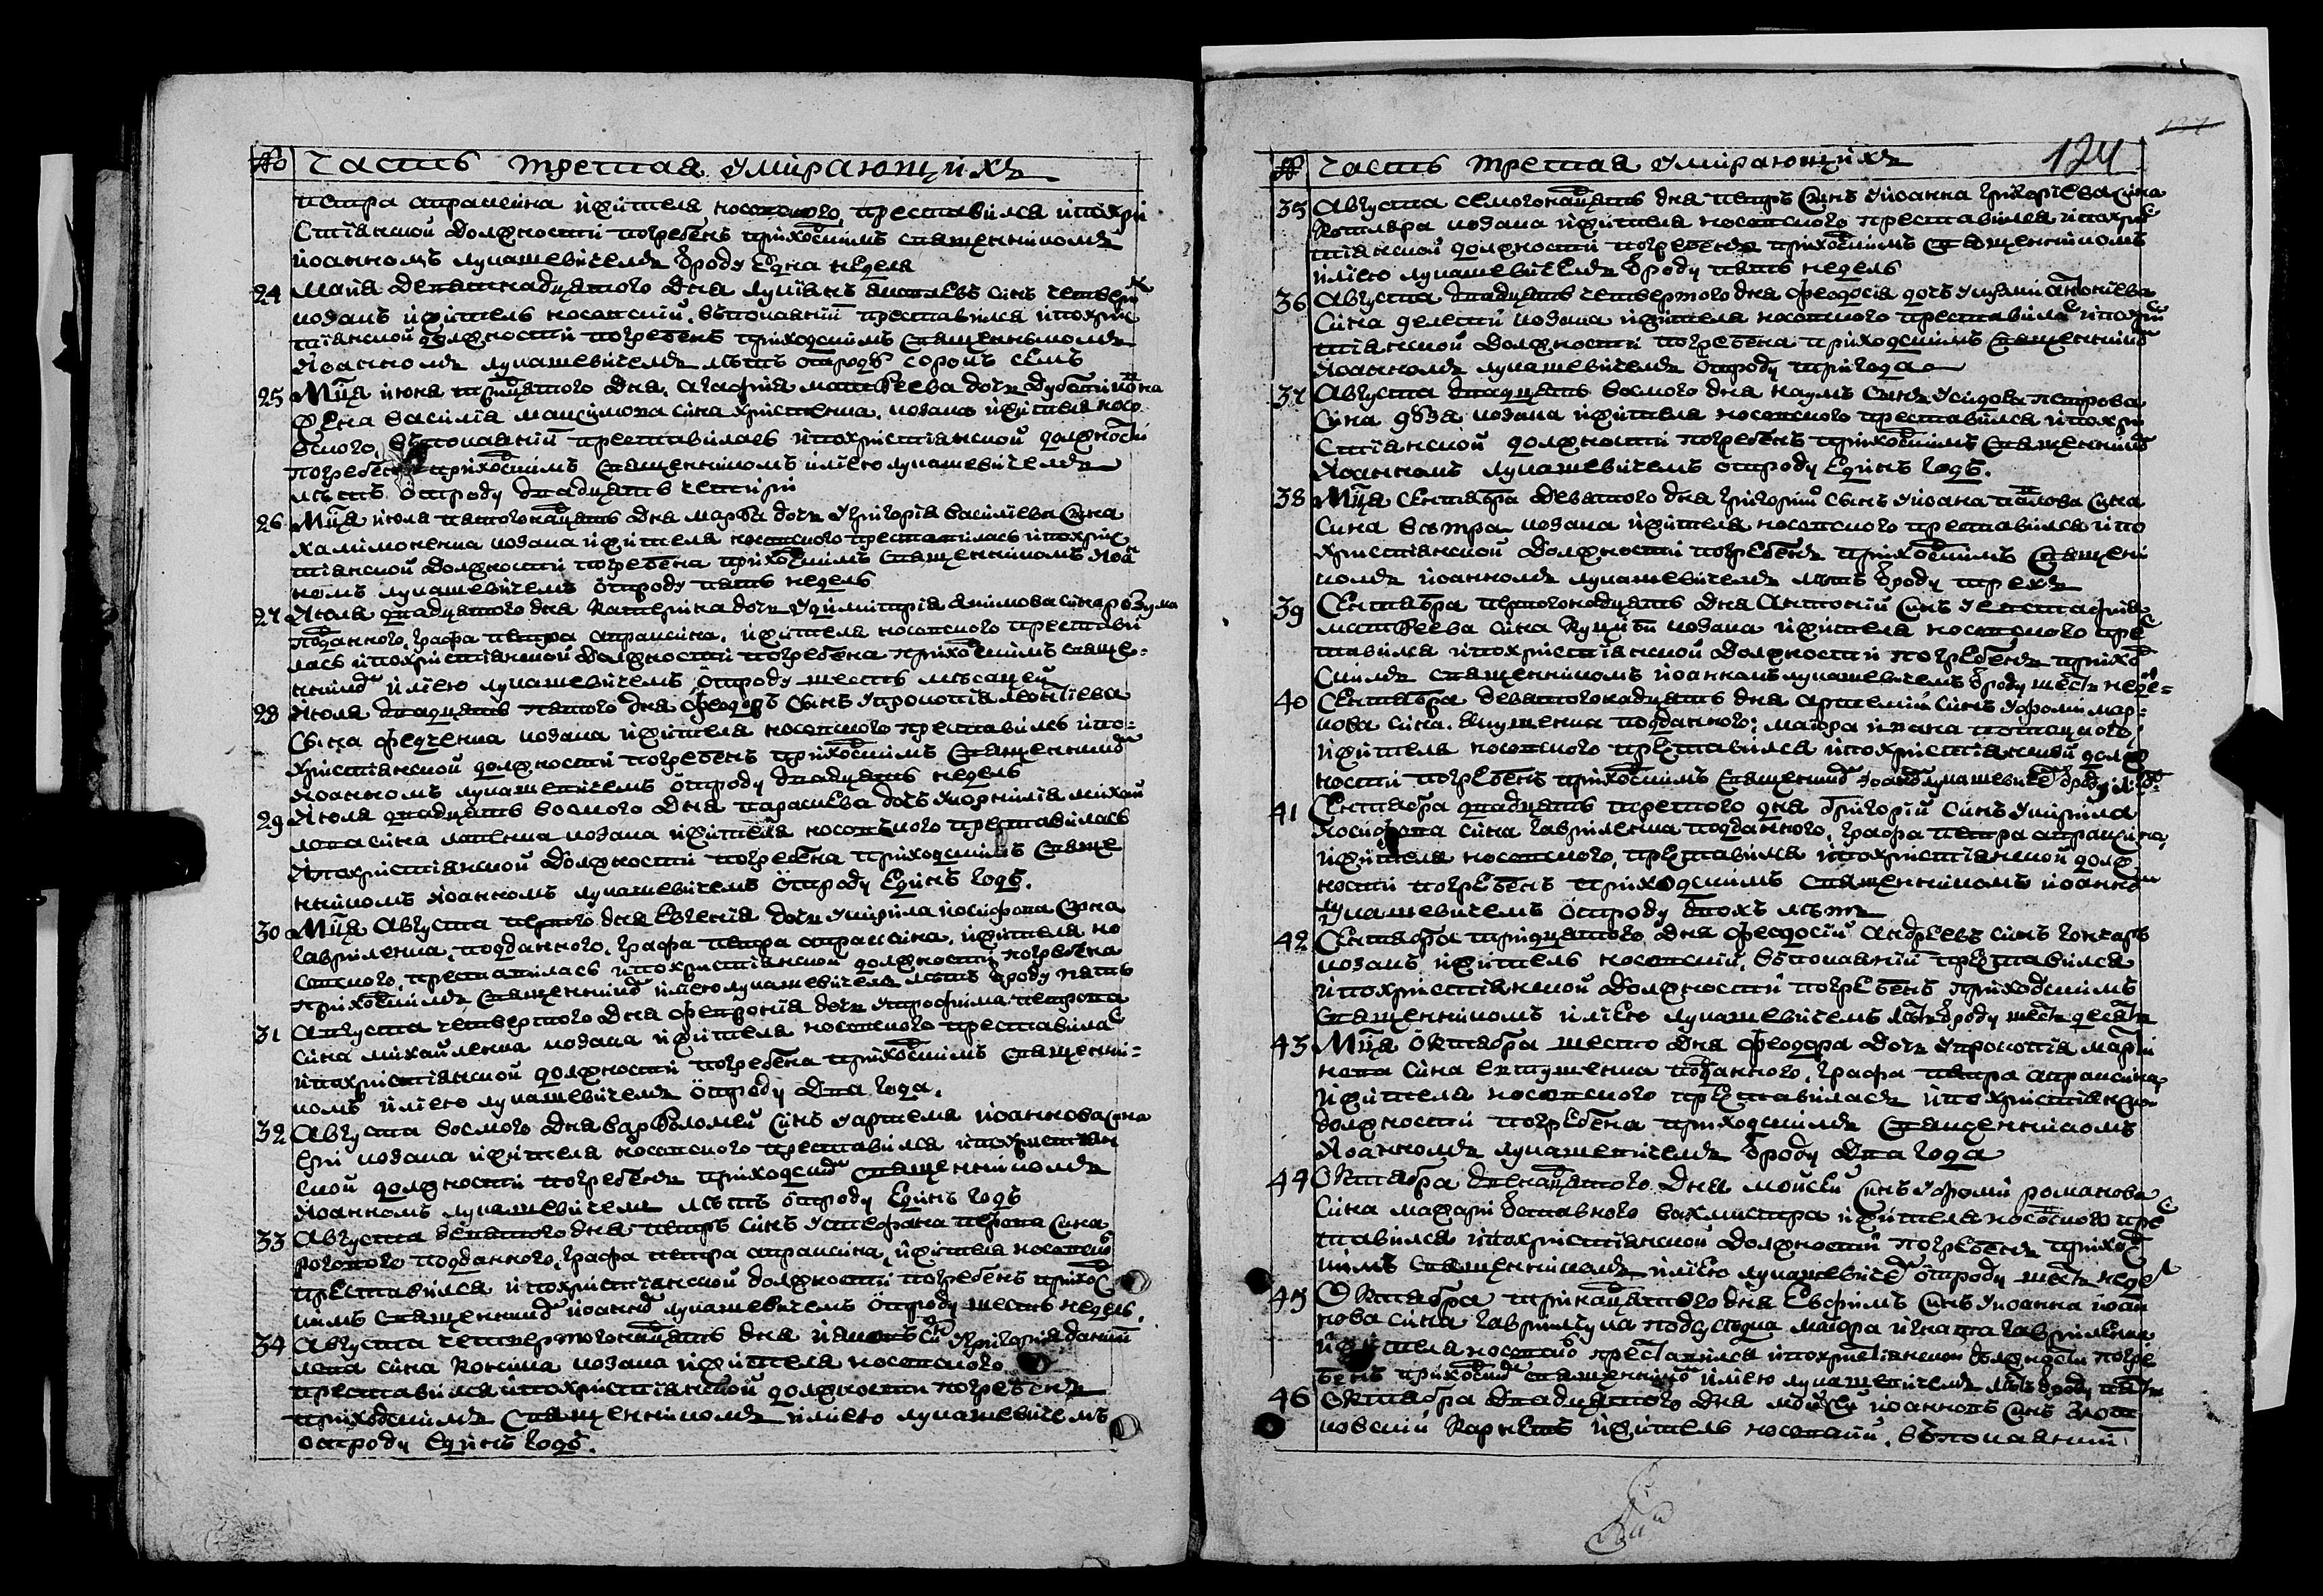 № Часть третая умирающихъ
петра апраксина и жителя носовского, преставился и похри
стиянской должности погребенъ приходскимъ священникомъ
иоанномъ лукашевичемъ ѿроду една неделя
24 Маия девятнадцатого дня лукіянъ сынъ
козакъ и житель носовский, въ покаянии преставился и похрис
тиянской должности погребенъ приходскимъ священникомъ
Иоанномъ лукашевичемъ летъ ѿроду сорокъ семъ
25 Мца июня тридцатого дня, агафия матвеева дочъ
жена василия максимова сина христенка, козака и жителя носо
вского, въ покаянии преставилась и похристиянской должности
погребена приходскимъ священникомъ илиею лукашевичемъ
летъ ѿроду двадцать чтири
26 Мца июля пятогонадцять дня марфа дочъ у григория василиева сина
халимоненка козака и жителя носовского преставилась и похрис
тиянской должности погребена приходскимъ священникомъ иоан
номъ лукашевичемъ ѿроду пять недель
27 Июля двадцатого дня катерина дочъ у димитрия акимова сина розума
подданного, графа петра апраксина, и жителя носовского престави
лась и похристиянской должности погребена приходскимъ свяще-
нникомъ илиею лукашевичемъ ѿроду шесть месяцей
28 Июля двадцять пятого дня феодоръ синъ у прокопия леонтиева
сина федченка козака и жителя носовского преставилъ и по-
християнской должности погребенъ приходскимъ священникомъ
Иоанномъ лукашевичемъ ѿроду двадцять недель
29 Июля двадцять восмого дня параскева дочъ у корнилия михаи
лова сина козака и жителя носовского преставилась
и похристиянской должности погребена приходскимъ священ
никомъ иоанномъ лукашевичемъ ѿроду единъ годъ.
30 Мца августа первого дня евгения дочъ у кирила иосифова сина
гавриленка, подданного, графа петра апраксина, и жителя но
совского, преставилась и похристиянской должности погребена
приходскимъ священникомъ илиею лукашевичемъ летъ ѿроду пять
31 Августа четвертого дня феврония дочъ у трофима петрова
сина михайленка козака и жителя носовского преставилас
и похристиянской должности погребена приходскимъ священни-
комъ илиею лукашевичемъ ѿроду два года.
32 Августа восмого дня варфоломей синъ у артема иоаннова сина
козака и жителя носовского преставился и похристиян
ской должности погребенъ приходскимъ священникомъ
Иоанномъ лукашевичемъ летъ ѿроду единъ годъ
33 Августа девятого дня петръ синъ у стефана сина
рогового подданного, графа петра апраксина, и жителя носовского
преставился и похристиянской должности погребенъ приходс
кимъ священникомъ иоанномъ лукашевичемъ ѿроду шесть недель,
34 Августа четвертогонадцять дня иаковъ синъ у григория дании
лова сина козака и жителя носовского
преставился и похристиянской должности погребенъ
приходскимъ священникомъ илиею лукашевичемъ
ѿроду единъ годъ.
124
№ Часть третая умирающихъ
35 Августа семогонадцять дня петръ синъ у иоанна григориева сина
котляра козака и жителя носовского преставился и похрис
тиянской должности погребенъ приходскимъ священникомъ
илиею лукашевичемъ ѿроду пять недель
36 Августа двадцять четвертого дня феодосия дочъ
сина козака и жителя носовского преставилас и похрис
тиянской должности погребена приходскимъ священникомъ
Иоанномъ лукашевичемъ ѿроду три года
37 Августа двадцять восмого дня наумъ синъ петрова
сина козака и жителя носовского преставился и похри
стиянской должности погребенъ приходскимъ священникомъ
Иоанномъ лукашевичемъ ѿроду единъ годъ.
38 Мца сентября девятого дня григорий синъ у иоана сина
козака и жителя носовского преставился и по
християнской должности погребенъ приходскимъ священни
комъ иоанномъ лукашевичемъ летъ ѿроду трехъ
39 Сентября первогонадцять дня антоний синъ у евстафия
матвеева сина козака и жителя носовского прес
тавился и похристиянской должности погребенъ приход
скимъ священникомъ иоанномъ лукашевичемъ ѿроду шесть недел-
40 Сентября девятогонадцять дня артемий синъ
сина подданного, маиора
и жителя носовского преставился и похристиянской долж
ности погребенъ приходскимъ священникомъ иоаномъ лукашевичемъ ѿроду
41 Сентября двадцять третого дня григорий синъ у кирила
иосифова сина гавриленка подданного, графа петра апраксина,
и жителя носовского, преставился и похристиянской долж
ности погребенъ приходскимъ священникомъ иоанномъ
лукашевичемъ ѿроду двохъ летъ
42 Сентября тридцатого дня феодосий андреевъ синъ гончаръ
козакъ и житель носовский, въ покаянии преставился
и похристиянской должности погребенъ приходскимъ
священникомъ илиею лукашевичемъ летъ ѿроду шестьдесятъ
43 Мца октября шестого дня феодора дочъ у прокопия марти
нова сина подданного, графа петра апраксина,
и жителя носовского преставилась и похристиянской
должности погребена приходскимъ священникомъ
Иоанномъ лукашевичемъ ѿроду два года
44 Октября двенадцатого дня моисей синъ романова
сина бунчового вахмистра и жителя носовского прес
тавился и похристиянской должности погребенъ приходс
кимъ священникомъ илиею лукашевичемъ ѿроду шесть недел
45 Октября тринадцатого дня евфимъ синъ у иоанна иоан
нова сина подсуседка маиора
и жителя носовского преставился и похристиянской должности погре
бенъ приходскимъ священникомъ илиею лукашевичемъ летъ ѿроду пять
46 Октября двадцатого дня моисей иоанновъ синъ
и житель носовский, въ покаянии